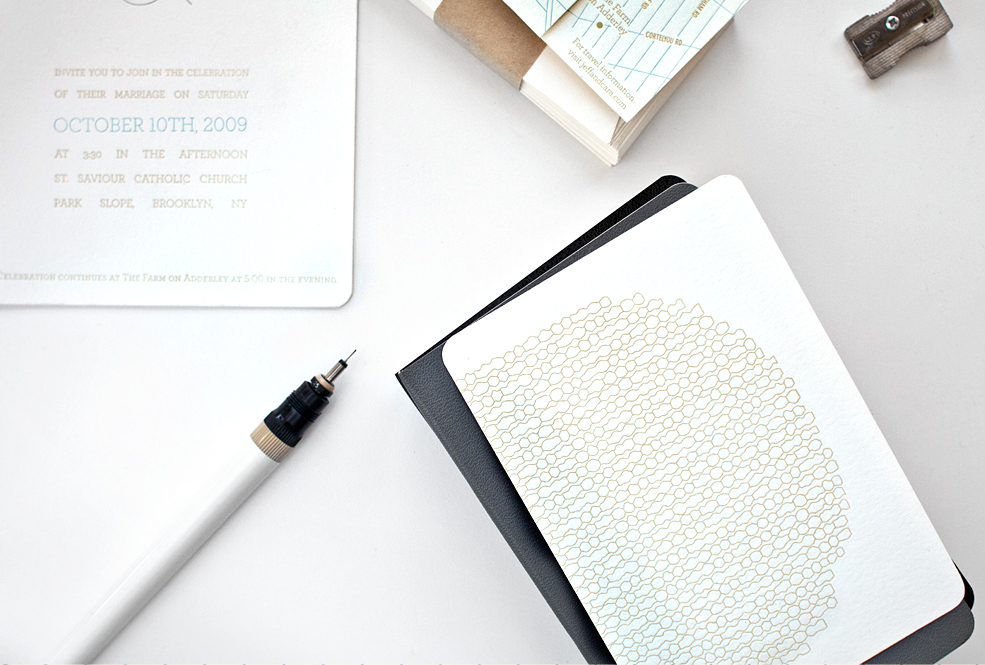 INVITE YOU TO JOIN IN THE CELEBRATION
OF THEIR MARRIAGE ON SATURDAY
OCTOBER 10TH, 2009
AT 3:30 IN THE AFTERNOON
ST. SAVIOUR CATHOLIC CHURCH
PARK SLOPE, BROOKLYN, NY
CELEBRATION CONTINUES AT THE FARM ON ADDERLEY AT 5:00 IN THE EVENING
Farm
Adderley
CORTELYOU RD
For travel information
visit jeffandcare.com